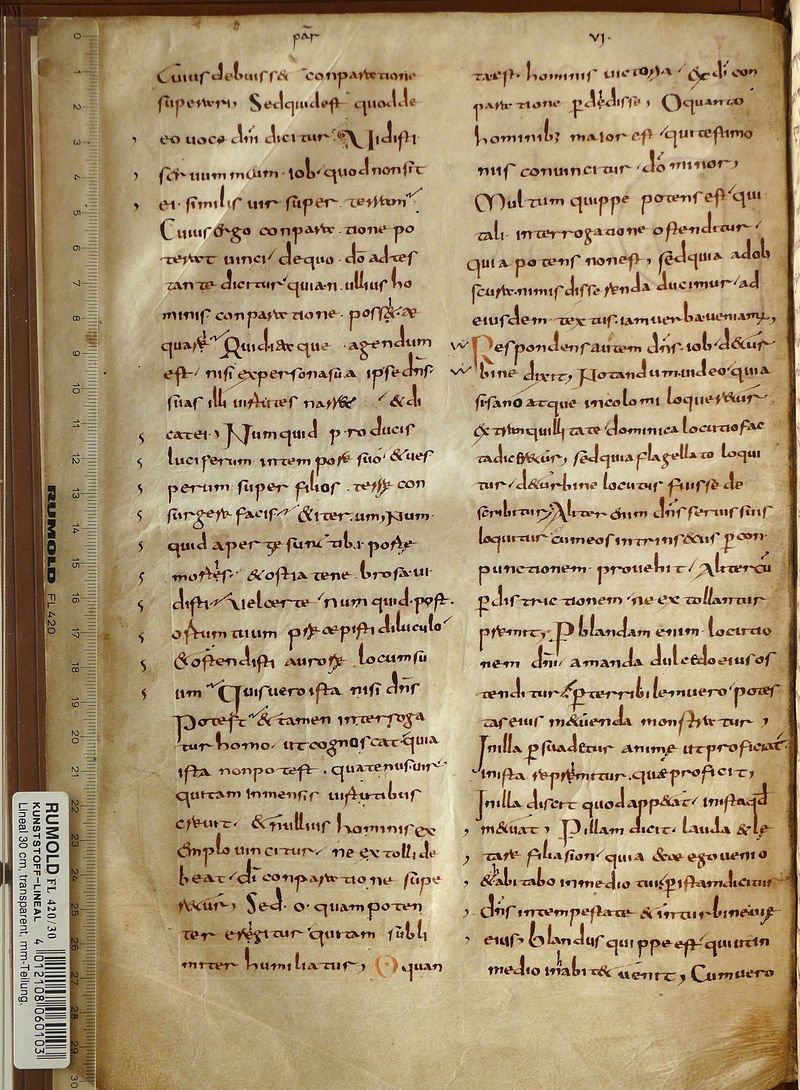 par
VI.
Cuius debuiss& conparatione
superari, Sed quid est quod de
eo uoce dni dicitur. Uidisti
seruum meum iob quod non sit
ei similis uir super terram
Cuius ergo conparatione po
teret uinci de quo do adtes
tante dicitur quia nullius ho
minis conparatione possit ae
quari, Quid itaque agendum
est nisi ex persona sua ipse dns
suas illi uirtutes narr& & di
cat ei, Numquid producis
luciferum in tempore suo & ues
perum super filios terrae con
surgere facis & iterum, Num
quid apertae sunt tibi portae
mortis & ostia tenebrosa ui
disti Uel certe numquid post
ortum tuum praecepisti diluculo
& ostendisti aurorae locum su
um Quis uero ista nisi dns
potest & tamen interroga
tur homo ut cognoscat quia
ista non potest, quatenus uir
qui tam inmensis uirtutibus
creuit & nullius hominis ex
emplo uincitur, ne extolli de
beat di conparatione supe
r&ur, Sed o quam poten
ter erigitur qui tam subli
miter humiliatur, O quan
ta est hominis uictoria & di con
paratione perdedisse, O quanto
hominib; maior est qui testimo
niis conuincitur do minor,
Multum quippe potens est qui
tali interrogatione ostenditur
quia potens non est, sed quia ad ob
scura nimis disserenda ducimur ad
eiusdem textus iam uerba ueniam;,
Respondens autem dns iob de tur
bine dixit, Notandum uideo quia
si sano atque incolomi loquer&ur
& tranquillitate dominica locutio fac
ta dicer&ur, sed quia flagellato loqui
tur de turbine locutus fuisse de
scribitur, Aliter enim dns seruis suis
loquitur cum eos intrinsecus per con
punctionem prouehit Aliter cu
per districtionem ne extollantur
premit, P blandam enim locutio
nem dni amanda dulcedo eius os
tenditur per terribilem uero potes
tas eius m&uenda monstratur,
In illa persuadetur animae ut proficiat
in ista reprimitur quae proficit,
In illa discit quod app&at in ista qd
m&uat, P illam dicit lauda & lae
tare filia sion quia ecce ego uenio
& habitabo in medio tui, p istam dicitur
dns in tempestate & in turbine uiae
eius, blandus quippe est qui ut in
medio inhabit& uenit, Cum uero
RUMOLD FL 420
RUMOLD FL 420/30
KUNSTSTOFF-LINEAL
Lineal 30 cm, transparent, mm-Teilung.
4 012108 060103